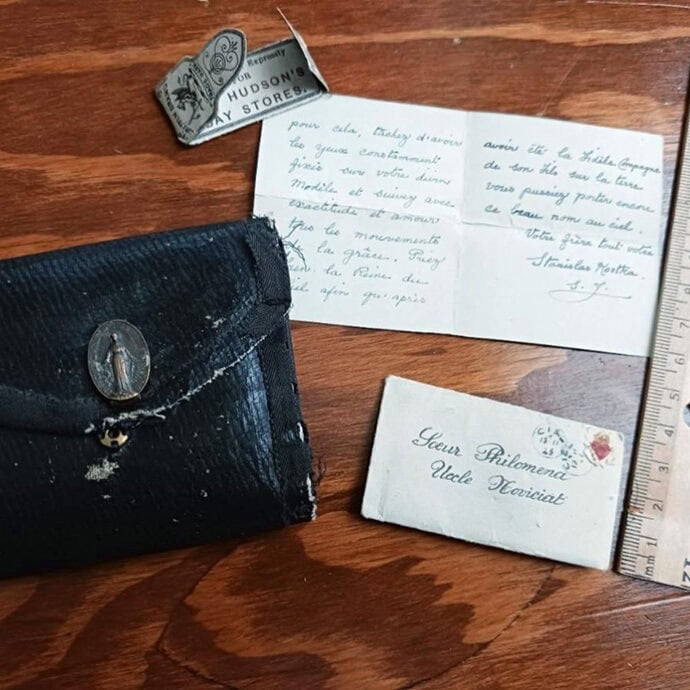 Repronity
FOR
HUDSON'S
AY STORES.
pour cela, tachez d'avoir
les yeux constamment
fixés sur votre divin
Modèle et suivez avec
exactitude et amour
tous les mouvements
de la grâce. Priez
la Reine du
afin qu'après
avoir été la Fidèle Compagne
de son Fils sur la terre
vous puissiez porter encore
ce beau nom au ciel.
Votre frère tout vôtre
Stanislas Kostka.
S. J.
Sœur Philomena
Uccle Noviciat
mm 1 2 3 4 5 6 7